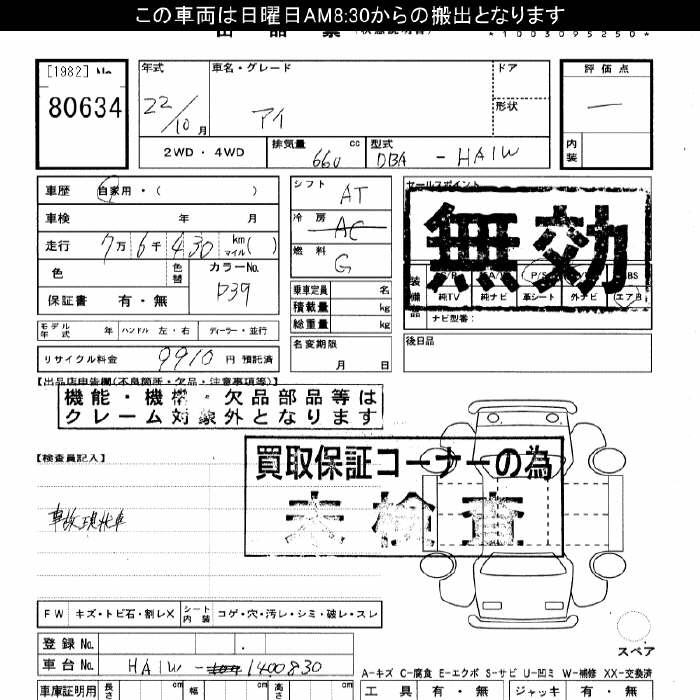 この車両は日曜日AM8:30からの搬出となります
*1003095250*
[1982] No.
80634
年式
22/10月
車名・グレード
アイ
ドア
形状
評価点
―
内装
2WD・4WD
排気量 660 cc
型式 DBA - HA1W
車歴 自家用・( )
車検 年 月
走行 7万6千430 km マイル ( )
色
色替
カラーNo.
D39
保証書 有・無
モデル年式 年 ハンドル 左・右 ディーラー・並行
リサイクル料金 9910 円 預託済
シフト AT
冷房 AC
燃料 G
乗車定員 名
積載量 kg
総重量 kg
名変期限
月 日
セールスポイント
無効
装備品
P/S
ABS
純TV 純ナビ 革シート 外ナビ エアB
ナビ型番:
後日品
【出品店申告欄(不良箇所・欠品・注意事項等)】
機能・機構・欠品部品等は
クレーム対象外となります
【検査員記入】
買取保証コーナーの為
未検査
事故現状車
FW キズ・トビ石・割レX シート内装 コゲ・穴・汚レ・シミ・破レ・スレ
登録No.
車台No. HA1W-1400830
スペア
A-キズ C-腐食 E-エクボ S-サビ U-凹ミ W-補修 XX-交換済
車庫証明用 長さ cm 幅 cm 高さ cm
工具 有・無 ジャッキ 有・無